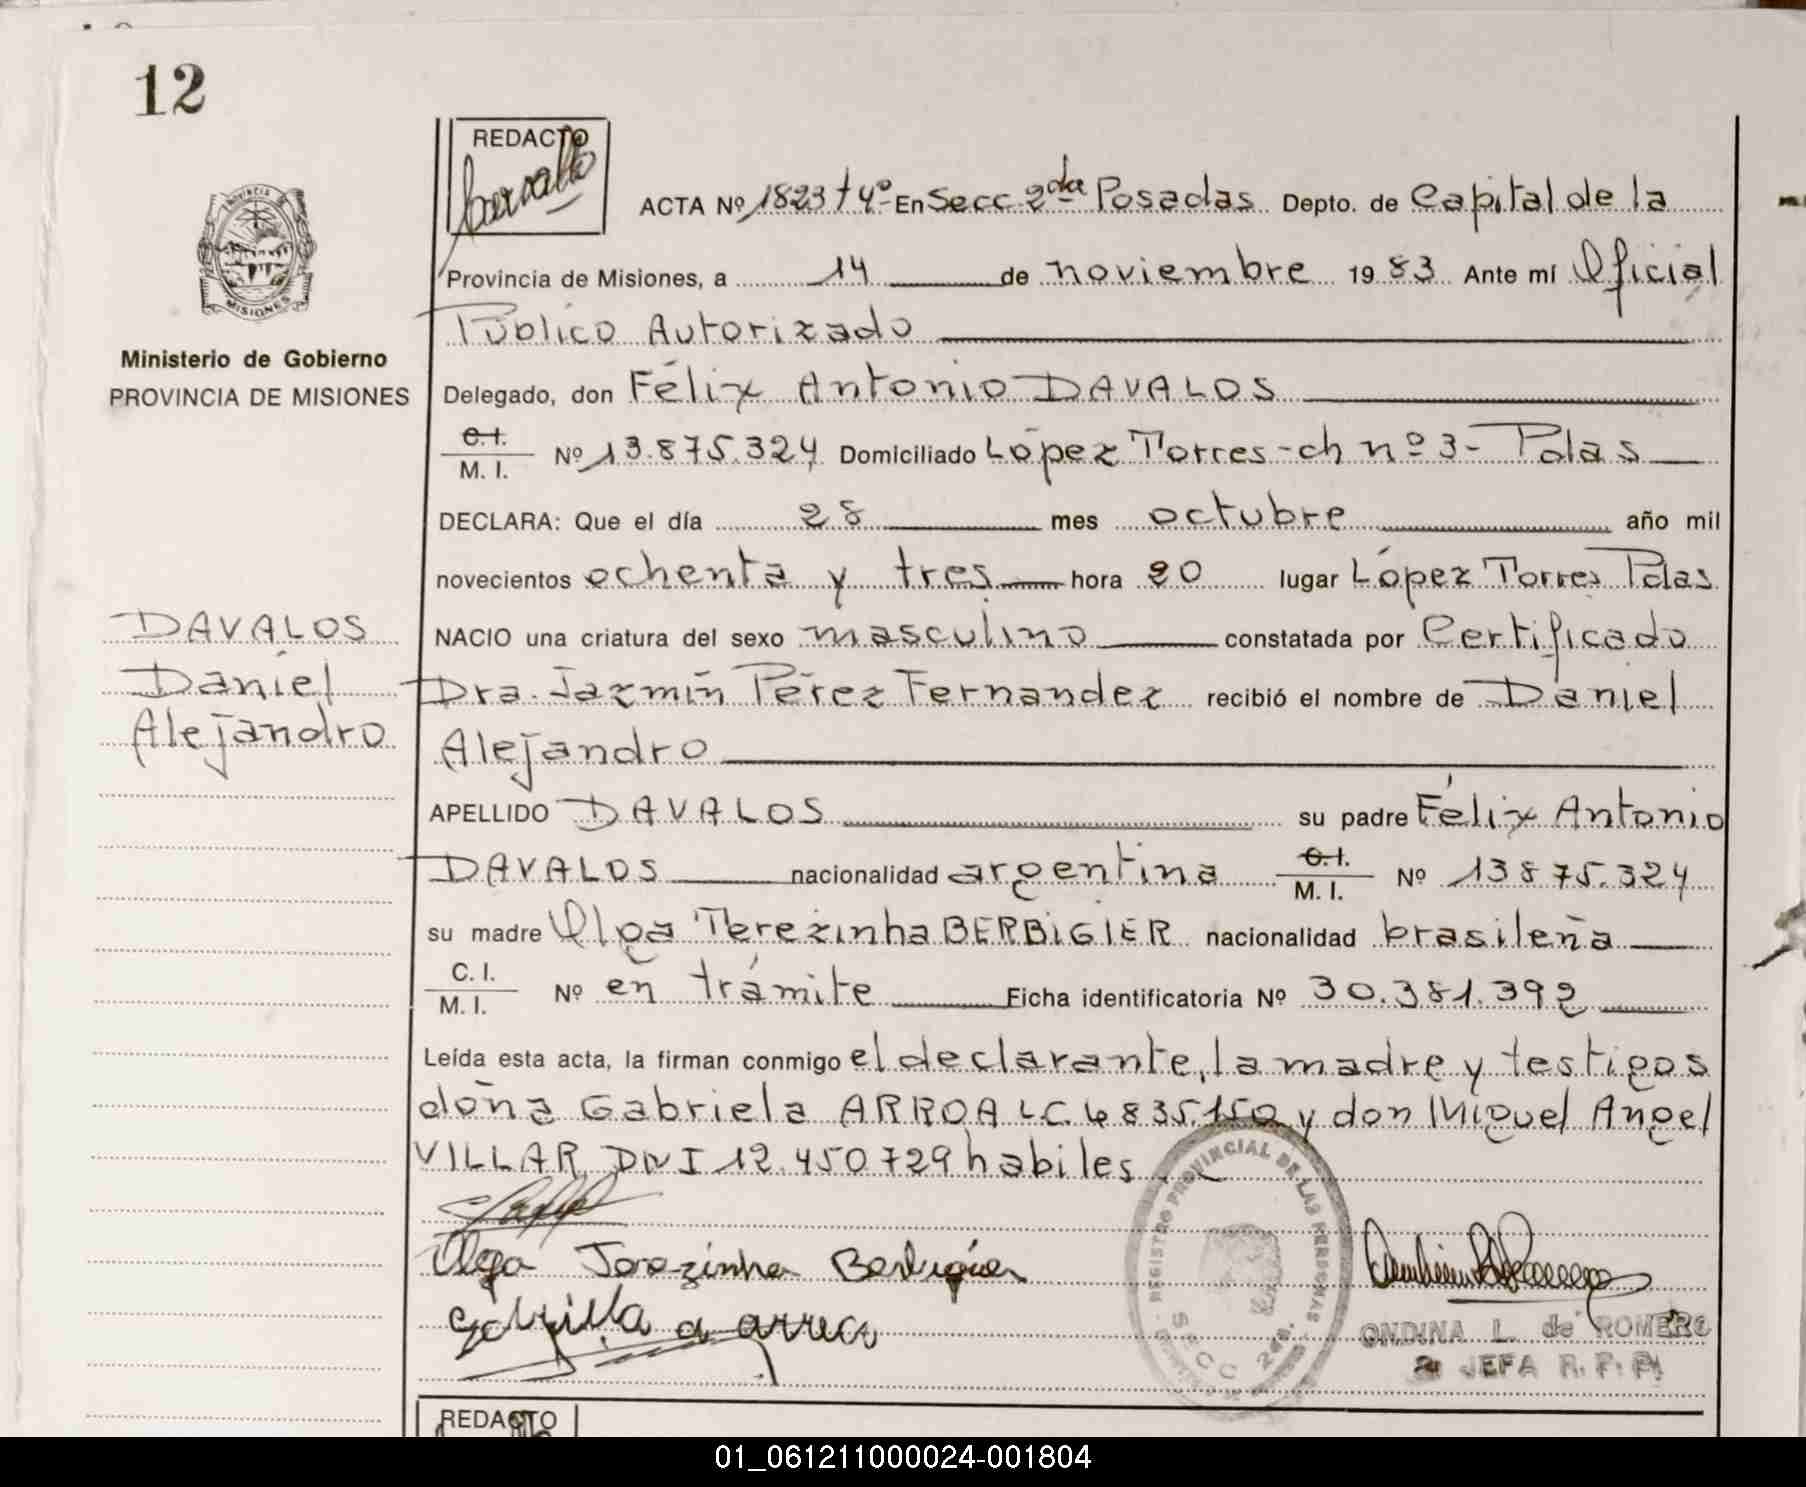 12
REDACTO
ACTA Nº 1823 t 4º En Secc 2da Posadas Depto. de Capital de la
Provincia de Misiones, a 14 de noviembre 1983 Ante mí Oficial
Público Autorizado
Delegado, don Félix Antonio DAVALOS
C.I.
M. I. Nº 13.875.324 Domiciliado López Torres-ch nº 3- Pdas
DECLARA: Que el día 28 mes octubre año mil
novecientos ochenta y tres hora 20 lugar López Torres Pdas
NACIO una criatura del sexo masculino constatada por Certificado
Dra. Jazmín Pérez Fernandez recibió el nombre de Daniel
Alejandro
APELLIDO DAVALOS su padre Félix Antonio
DAVALOS nacionalidad argentina C.I.
M. I. Nº 13875.324
su madre Olga Terezinha BERBIGIER nacionalidad brasileña
C. I.
M. I. Nº en trámite Ficha identificatoria Nº 30.381.392
Leída esta acta, la firman conmigo el declarante, la madre y testigos
doña Gabriela ARROA LC.4835.150 y don Miguel Angel
VILLAR DNI 12.450729 habiles
Olga Terezinha Berbigier
REGISTRO PROVINCIAL DE LAS PERSONAS
SECC 2da.
ONDINA L. de ROMERO
JEFA R. P. P.
PROVINCIA
MISIONES
Ministerio de Gobierno
PROVINCIA DE MISIONES
DAVALOS
Daniel
Alejandro
REDACTO
01_061211000024-001804